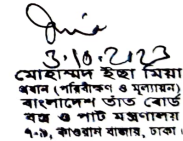 3.10.2023
মোহাম্মদ ইছা মিয়া
প্রধান (পরিবীক্ষণ ও মূল্যায়ন)
বাংলাদেশ তাঁত বোর্ড
বস্ত্র ও পাট মন্ত্রণালয়
৭-৯, কাওরান বাজার, ঢাকা।